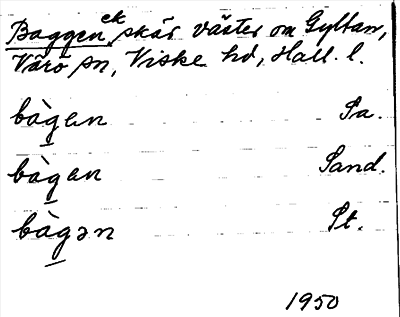 Baggen, ek. skär väster om Gyltan,
Värö sn, Viske hd, Hall. l.
bàgen Sa.
bàgen Sand.
bàgən St.
1950